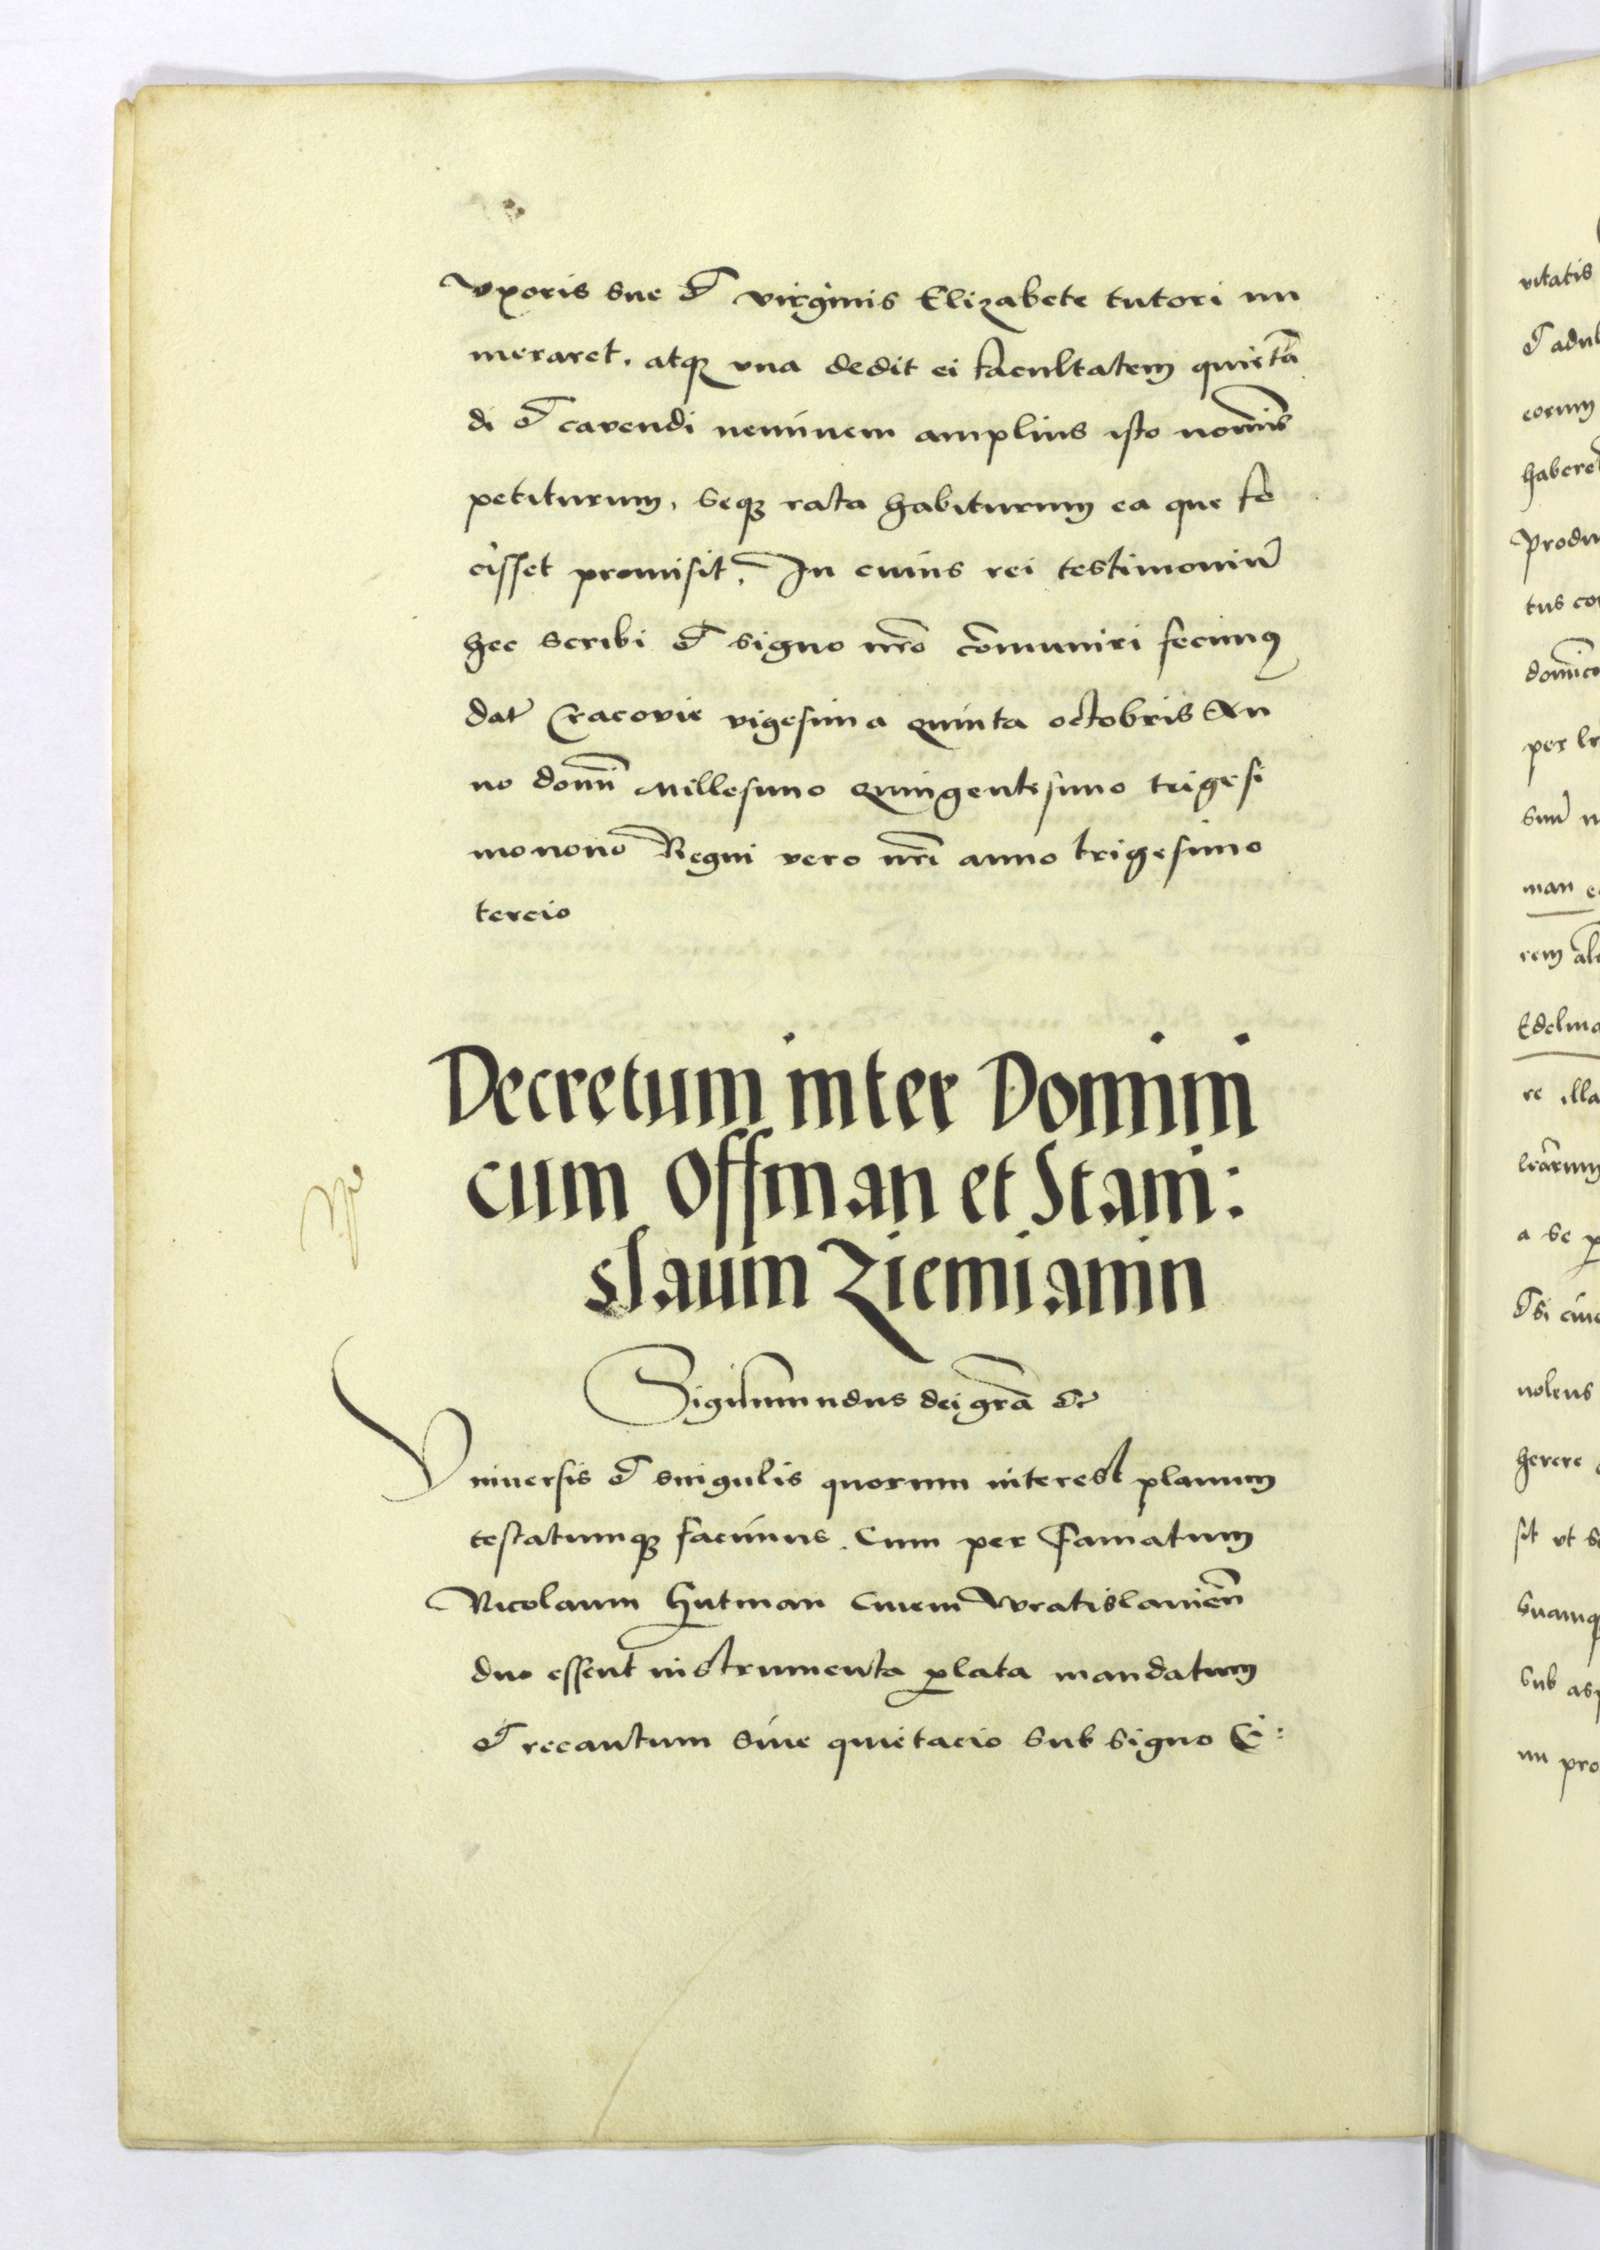 Vxoris sue et virginis Elizabete tutori nu
meraret. atqꝫ vna dedit ei facultatem quietā
di et cavendi neminem amplius isto noīnis
petiturum, seqꝫ rata habiturum ea que fe
cisset promisit. In cuius rei testimoniū
hec scribi et signo nr̄o cōmuniri fecimꝰ
dat̄ Cracovie vigesima quinta octobris An
no domī Millesimo Quingentesimo trigesi
mo nono Regni vero nr̄i anno trigesimo
tercio
Decretum inter Domini
cum Offman et Stani:
slaum Ziemianin
Sigismundus dei gr̄a etc
Vniversis et singulis quorum interest planum
testatumqꝫ facimus. Cum per Famatum
Nicolaum Hutman Civem Wratislavieñ
duo essent instrumenta ꝑlata mandatum
et recautum sive quietacio sub signo Ci:
vitatis
et adul
eorum
habere
produ
tus co
domīco
per
man
rem
Edelma
re illa
lr̄arum
a se
et si
nolens
herere
sit vt
suamqꝫ
sub
nu pro